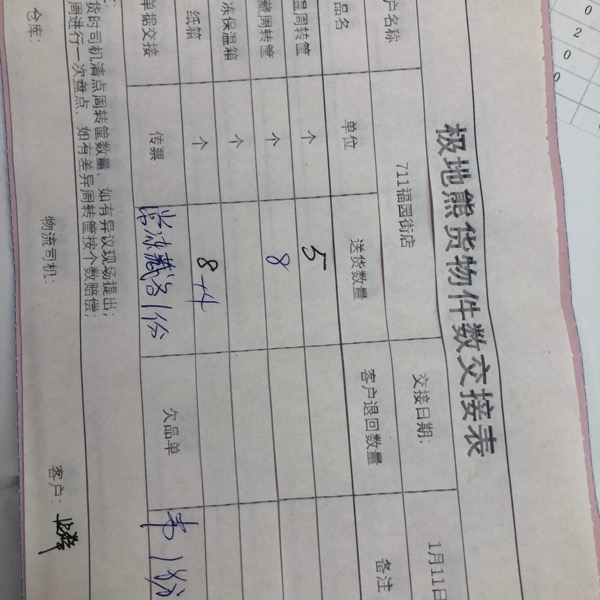 极地熊货物件数交接表
户名称 711福园街店 交接日期: 1月11日
品名 单位 送货数量 客户退回数量 备注
温周转筐 个 5
藏周转筐 个 8
冻保温箱 个
纸箱 个 8+4
单据交接 传票 常冷藏各1份 欠品单 常1份
货时司机清点周转筐数量,如有异议现场提出;
周进行一次盘点,如有差异周转筐按个数赔偿;
仓库: 物流司机: 客户:
0
2
0
0